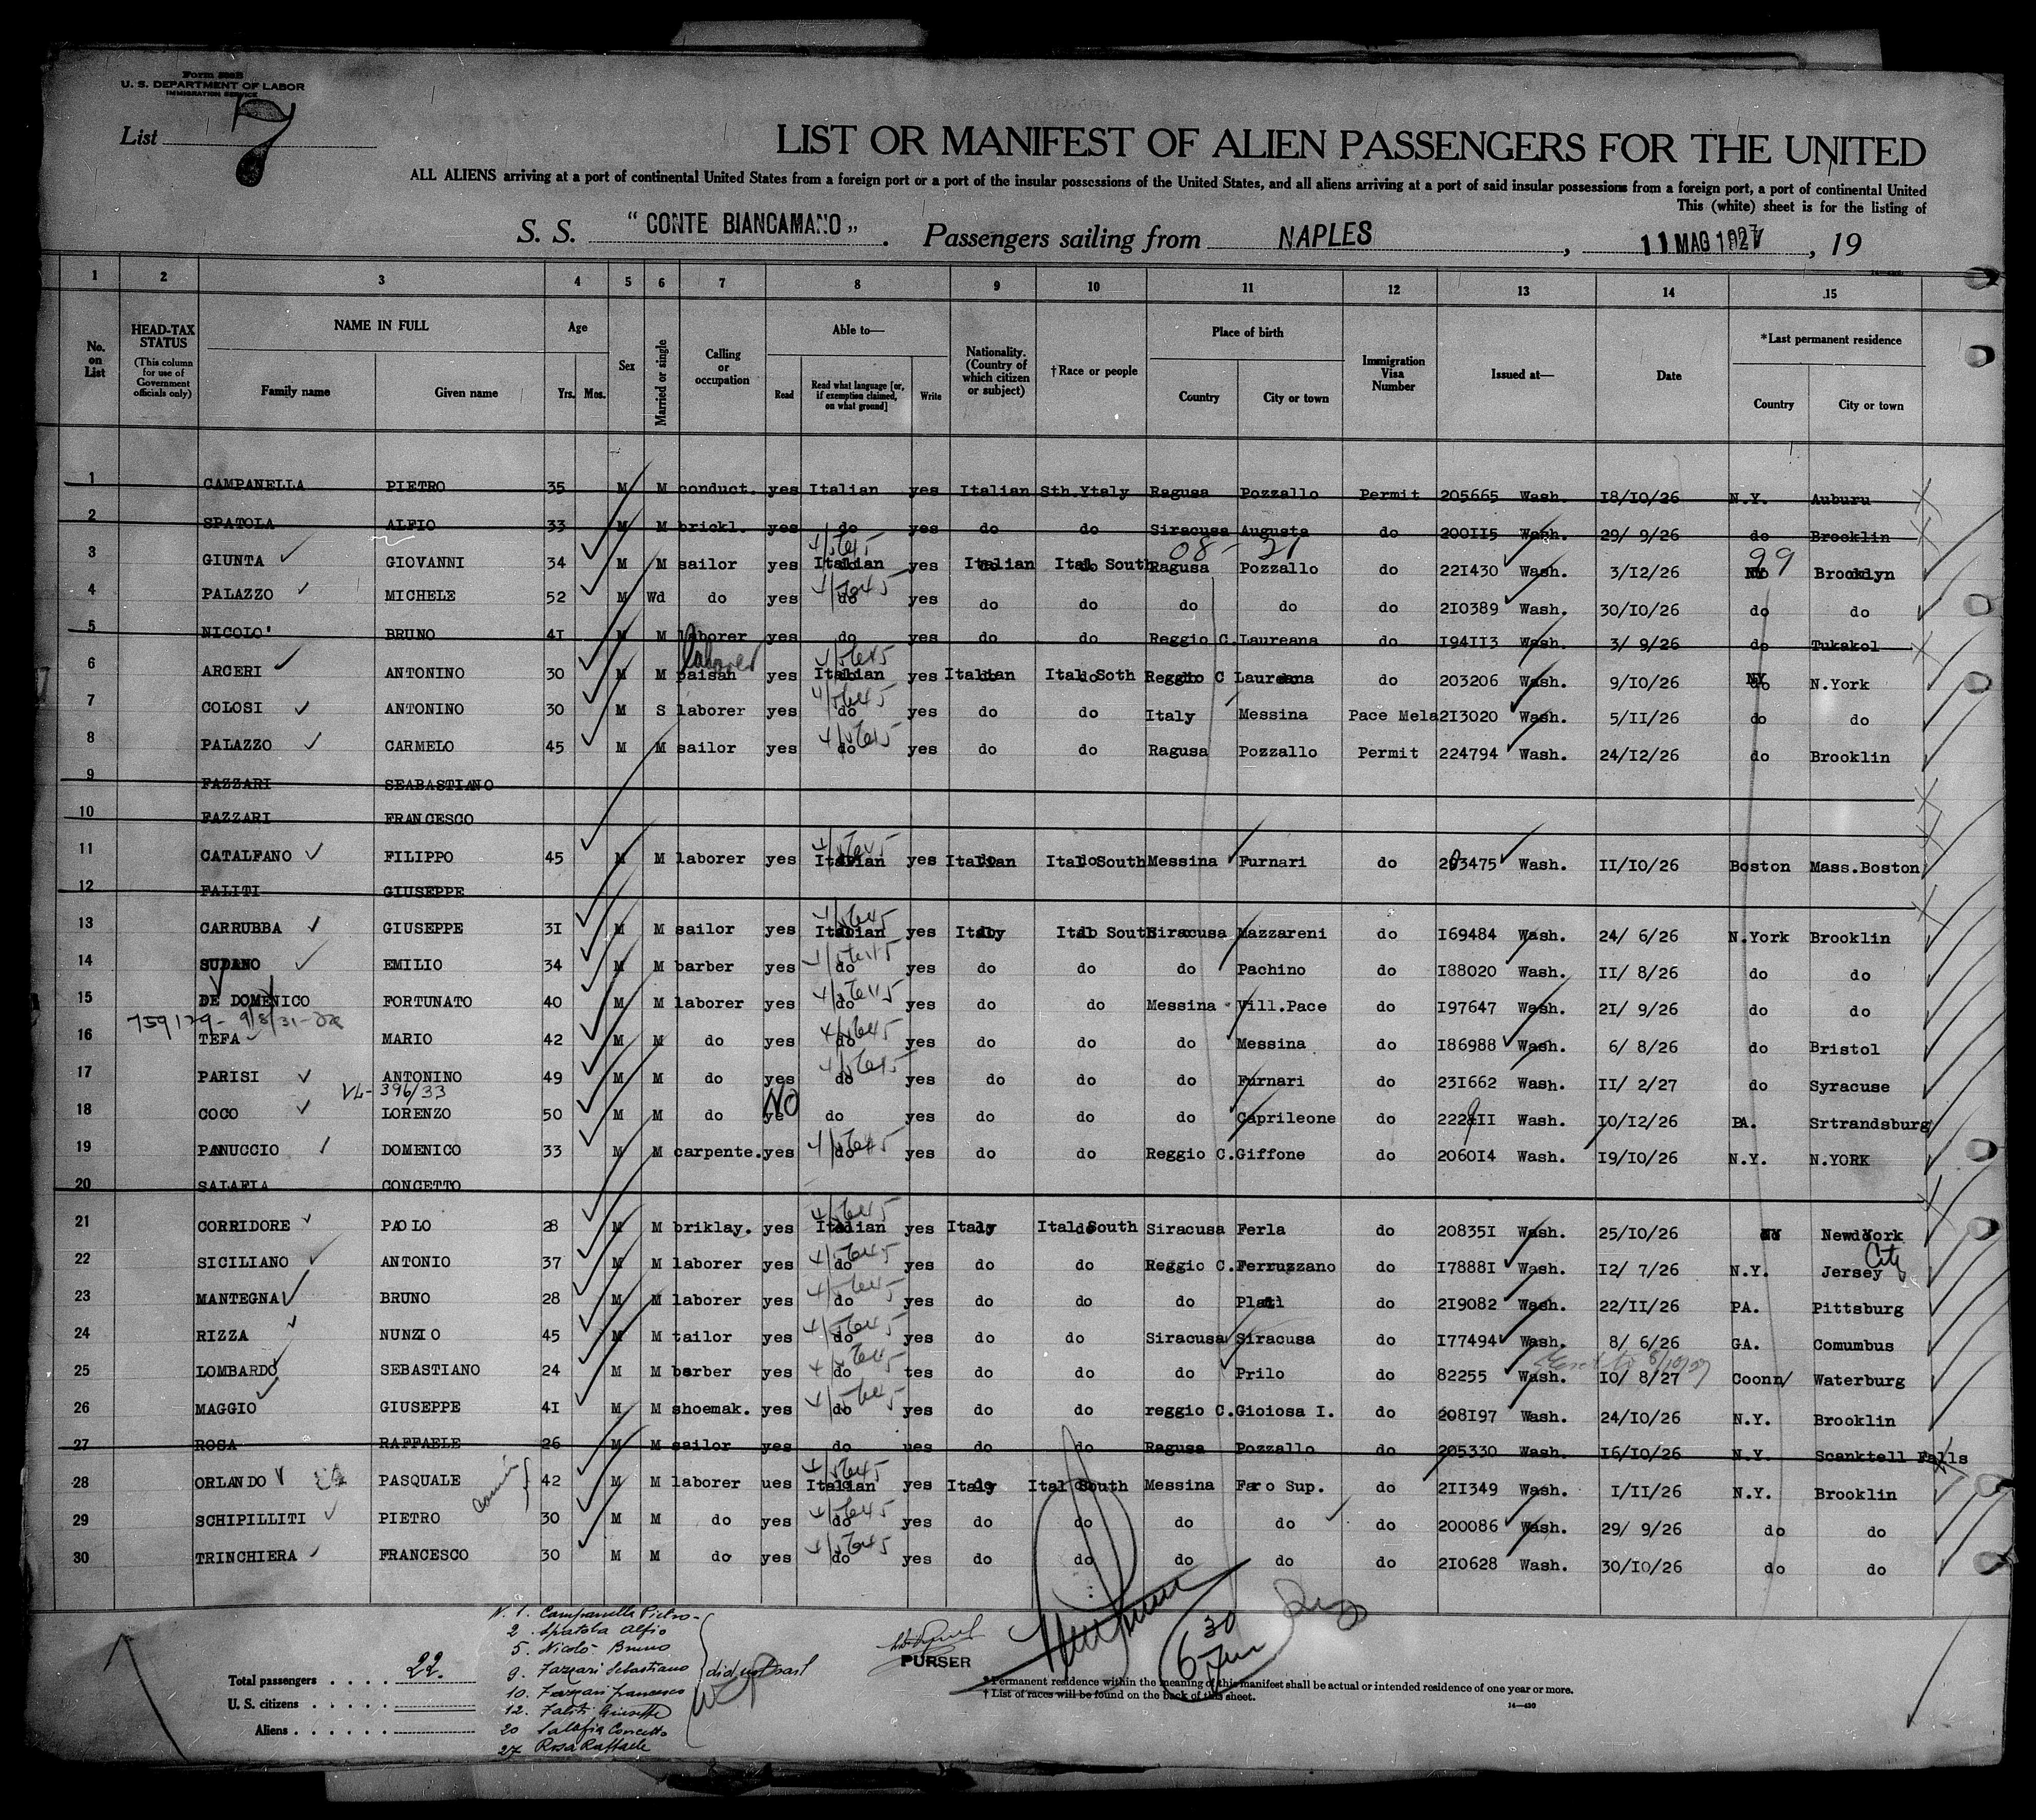 Form 500B
U. S. DEPARTMENT OF LABOR
IMMIGRATION SERVICE
List 7
LIST OR MANIFEST OF ALIEN PASSENGERS FOR THE UNITED
ALL ALIENS arriving at a port of continental United States from a foreign port or a port of the insular possessions of the United States, and all aliens arriving at a port of said insular possessions from a foreign port, a port of continental United
This (white) sheet is for the listing of
S. S. "CONTE BIANCAMANO". Passengers sailing from NAPLES, 11 MAG 1927, 19
1 2 3 4 5 6 7 8 9 10 11 12 13 14 15
No. on List
HEAD-TAX STATUS (This column for use of Government officials only)
NAME IN FULL Family name Given name
Age Yrs. Mos.
Sex
Married or single
Calling or occupation
Able to— Read Read what language [or, if exemption claimed, on what ground] Write
Nationality. (Country of which citizen or subject)
†Race or people
Place of birth Country City or town
Immigration Visa Number
Issued at—
Date
*Last permanent residence Country City or town
1 CAMPANELLA PIETRO 35 M M conduct. yes Italian yes Italian Sth.Ytaly Ragusa Pozzallo Permit 205665 Wash. 18/10/26 N.Y. Auburu
2 SPATOLA ALFIO 33 M M brickl. yes do yes do do Siracusa Augusta do 200115 Wash. 29/ 9/26 do Brooklin
08 - 21 99
3 GIUNTA GIOVANNI 34 M M sailor yes Italian yes Italian Ital South Ragusa Pozzallo do 221430 Wash. 3/12/26 NY Brooklyn
4 PALAZZO MICHELE 52 M Wd do yes do yes do do do do do 210389 Wash. 30/10/26 do do
5 NICOLO' BRUNO 41 M M laborer yes do yes do do Reggio C. Laureana do 194113 Wash. 3/ 9/26 do Tukakol
laborer
6 ARCERI ANTONINO 30 M M paisan yes Italian yes Italian Ital Soth Reggio C Laureana do 203206 Wash. 9/10/26 NY N.York
7 COLOSI ANTONINO 30 M S laborer yes do yes do do Italy Messina Pace Mela 213020 Wash. 5/11/26 do do
8 PALAZZO CARMELO 45 M M sailor yes do yes do do Ragusa Pozzallo Permit 224794 Wash. 24/12/26 do Brooklin
9 FAZZARI SEABASTIANO
10 FAZZARI FRANCESCO
11 CATALFANO FILIPPO 45 M M laborer yes Italian yes Italian Ital South Messina Furnari do 203475 Wash. 11/10/26 Boston Mass.Boston
12 FALITI GIUSEPPE
13 CARRUBBA GIUSEPPE 31 M M sailor yes Italian yes Italy Ital South Siracusa Mazzareni do 169484 Wash. 24/ 6/26 N.York Brooklin
14 SUDANO EMILIO 34 M M barber yes do yes do do do Pachino do 188020 Wash. 11/ 8/26 do do
15 DE DOMENICO FORTUNATO 40 M M laborer yes do yes do do Messina Vill.Pace do 197647 Wash. 21/ 9/26 do do
759129 - 9/8/31
16 TEFA MARIO 42 M M do yes do yes do do do Messina do 186988 Wash. 6/ 8/26 do Bristol
17 PARISI ANTONINO 49 M M do yes do yes do do do Furnari do 231662 Wash. 11/ 2/27 do Syracuse
VL- 396/33 NO
18 COCO LORENZO 50 M M do ye do yes do do do Caprileone do 222811 Wash. 10/12/26 PA. Srtrandsburg
19 PANUCCIO DOMENICO 33 M M carpente. yes do yes do do Reggio C. Giffone do 206014 Wash. 19/10/26 N.Y. N.YORK
20 SALAFIA CONCETTO
21 CORRIDORE PAOLO 28 M M briklay. yes Italian yes Italy Ital South Siracusa Ferla do 208351 Wash. 25/10/26 NY New York
22 SICILIANO ANTONIO 37 M M laborer yes do yes do do Reggio C. Ferruzzano do 178881 Wash. 12/ 7/26 N.Y. Jersey City
23 MANTEGNA BRUNO 28 M M laborer yes do yes do do do Plati do 219082 Wash. 22/11/26 PA. Pittsburg
24 RIZZA NUNZIO 45 M M tailor yes do yes do do Siracusa Siracusa do 177494 Wash. 8/ 6/26 GA. Comumbus
25 LOMBARDO SEBASTIANO 24 M M barber yes do tes do do do Prilo do 82255 Wash. 10/ 8/27 Coonn/ Waterburg
26 MAGGIO GIUSEPPE 41 M M shoemak. yes do yes do do reggio C. Gioiosa I. do 208197 Wash. 24/10/26 N.Y. Brooklin
27 ROSA RAFFAELE 26 M M sailor yes do ues do do Ragusa Pozzallo do 205330 Wash. 16/10/26 N.Y. Scanktell Falls
28 ORLANDO PASQUALE 42 M M laborer ues Italian yes Italy Ital South Messina Faro Sup. do 211349 Wash. 1/11/26 N.Y. Brooklin
29 SCHIPILLITI PIETRO 30 M M do yes do yes do do do do do 200086 Wash. 29/ 9/26 do do
30 TRINCHIERA FRANCESCO 30 M M do yes do yes do do do do do 210628 Wash. 30/10/26 do do
N. 1. Campanella Pietro -
2 Spatola Alfio
5. Nicolò Bruno
9. Fazzari Sebastiano
10. Fazzari francesco
12. Faliti Giuseppe
20 Salafia Concetto
27 Rosa Raffaele
did not sail
Total passengers . . . . 22.
U. S. citizens . . . .
Aliens . . . . . .
PURSER
6 30
*Permanent residence within the meaning of this manifest shall be actual or intended residence of one year or more.
†List of races will be found on the back of this sheet.
14—430